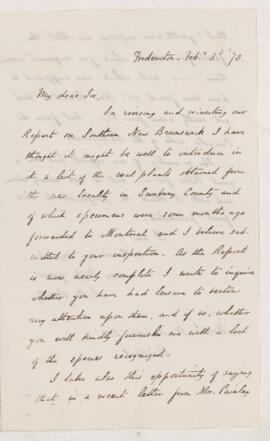 Fredericton Feb. 3d '70.
My dear Sir,
In revising and rewriting our
Report on Southern New Brunswick I have
thought it might be well to introduce in
it a list of the coal plants obtained from
the new locality in Sunbury County and
of which specimens were some months ago
forwarded to Montreal and I believe sub-
mitted to your inspection. As the Report
is now nearly complete I write to inquire
whether you have had leisure to bestow
any attention upon them, and if so, whether
you will kindly furnish me with a list
of the species recognized.
I take also this opportunity of saying
that in a recent letter from Mr.